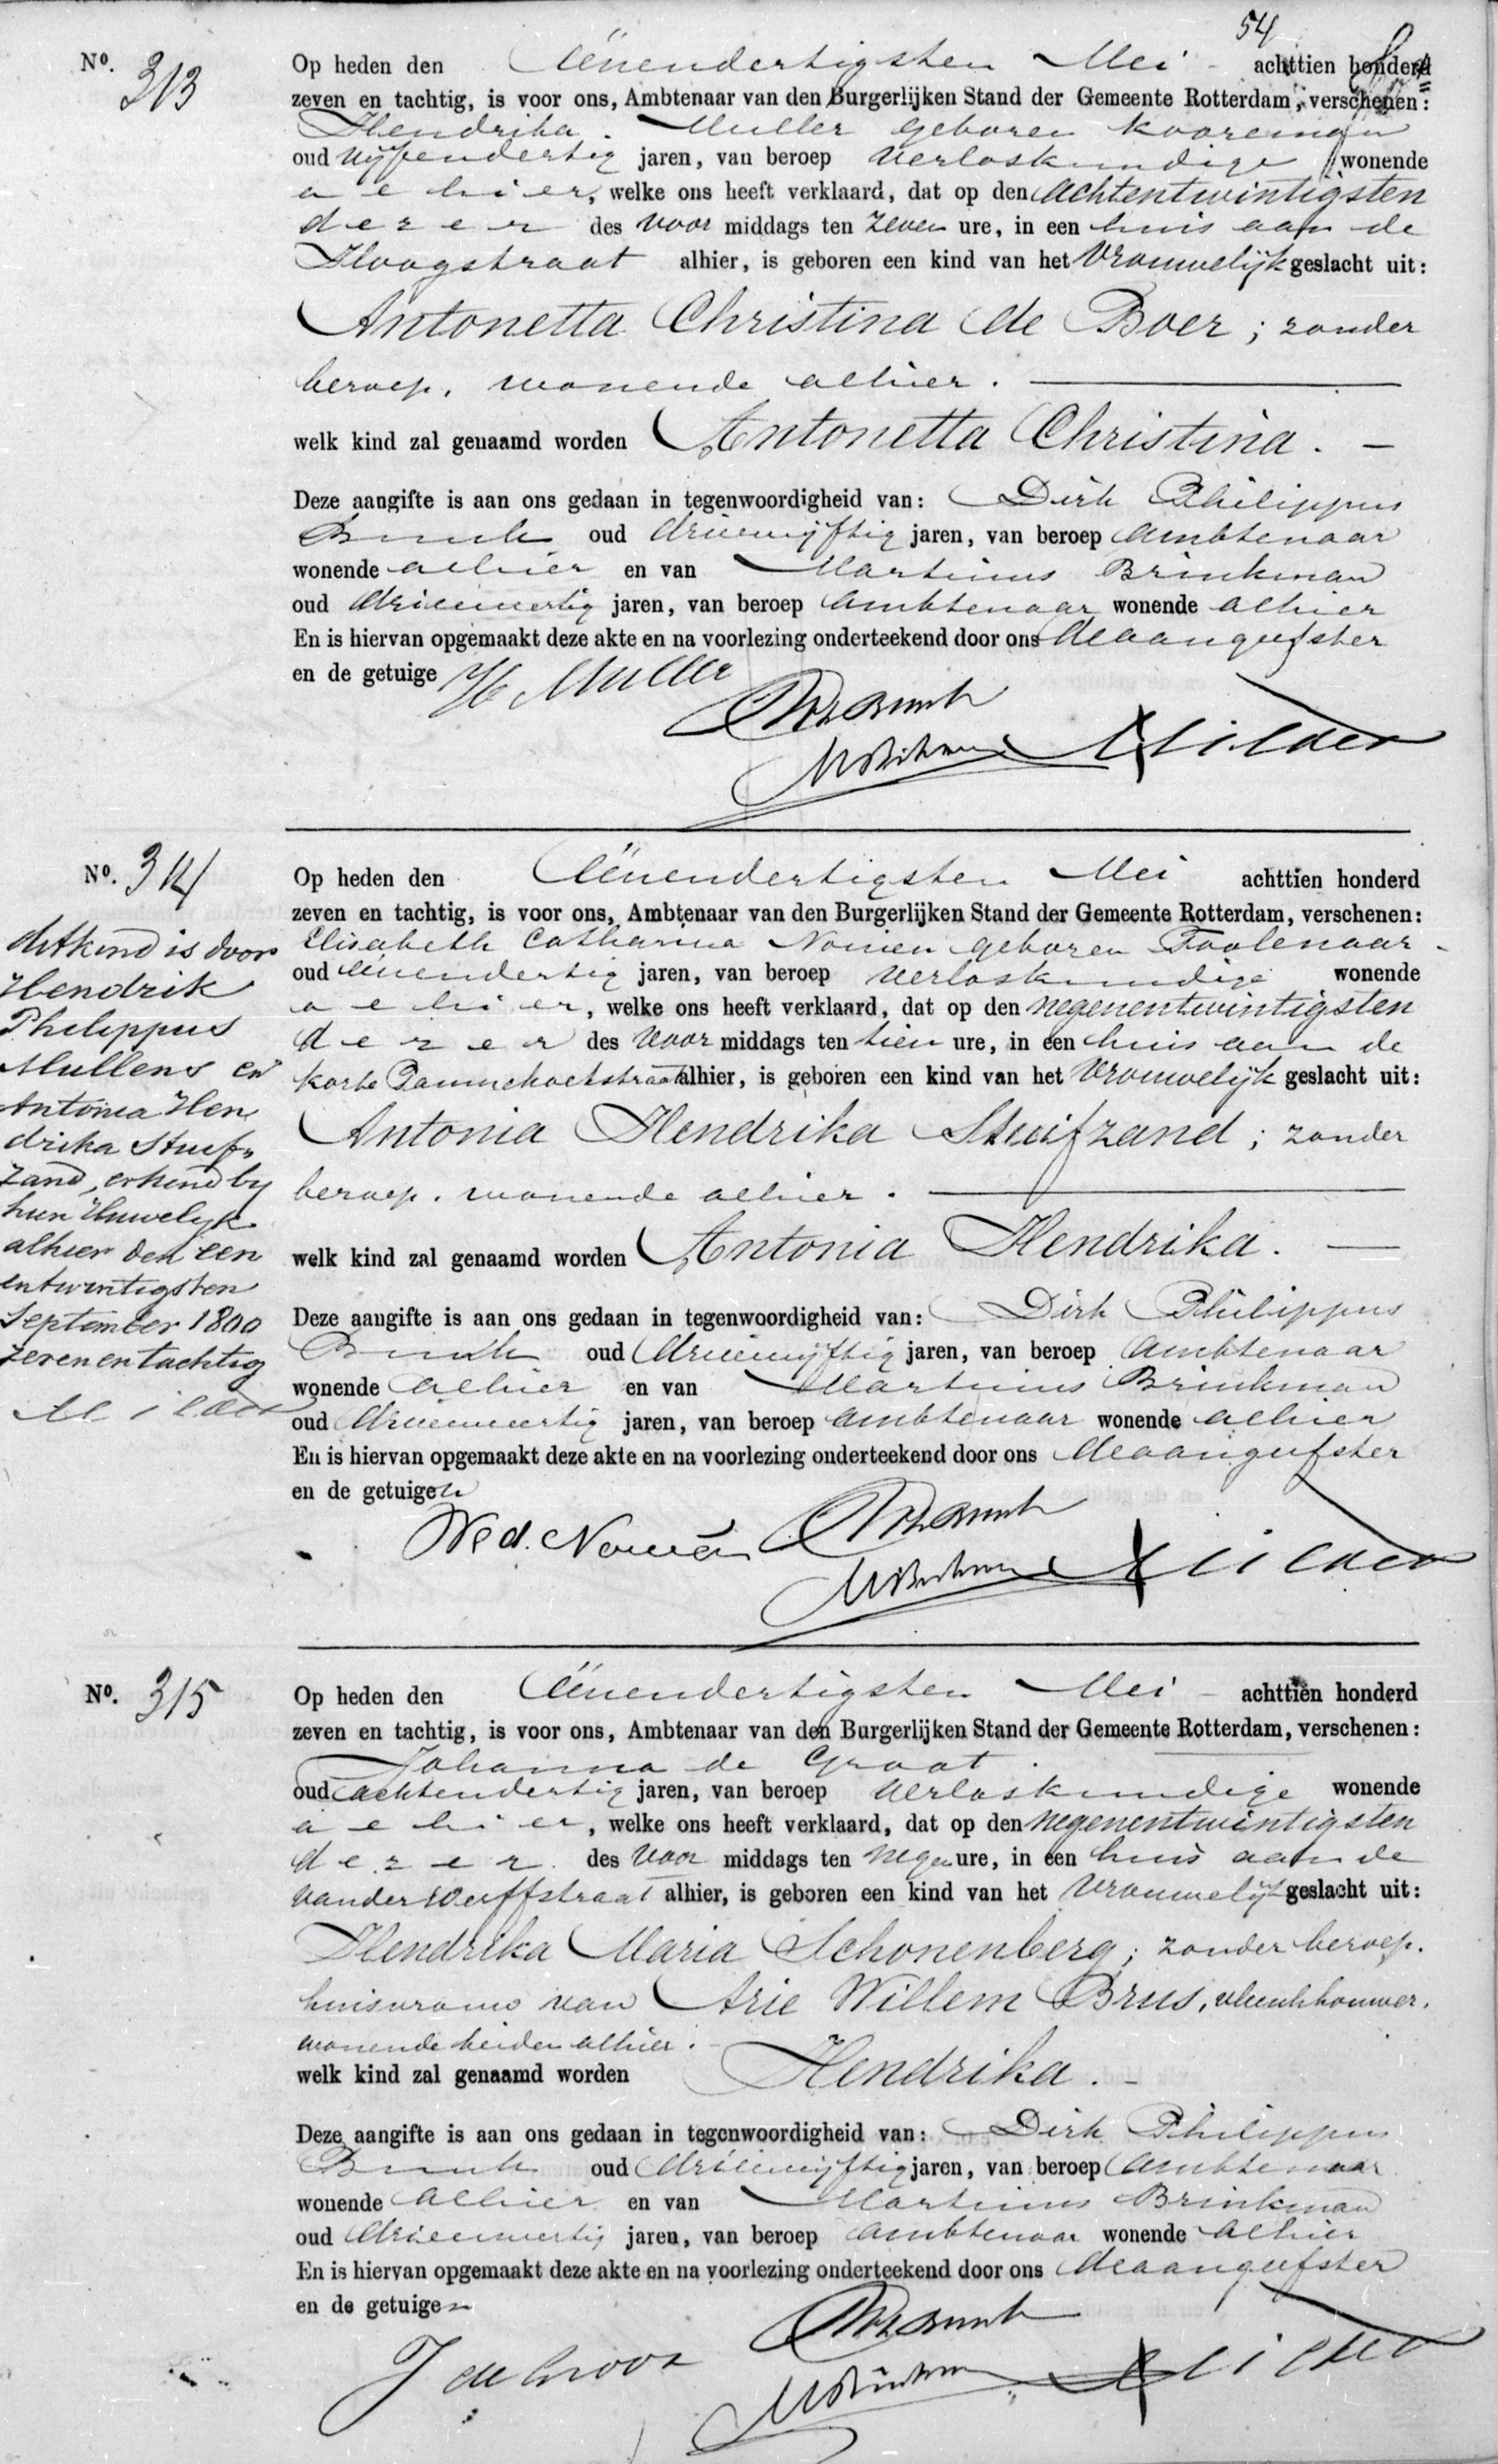 54
No. 313
Op heden den Eénendertigsten Mei achttien honderd
zeven en tachtig, is voor ons, Ambtenaar van den Burgerlijken Stand der Gemeente Rotterdam, verschenen:
Hendrika Muller geboren Kooreman
oud vijfendertig jaren, van beroep verloskundige wonende
alhier, welke ons heeft verklaard, dat op den achtentwintigsten
dezer des voor middags ten zeven ure, in een huis aan de
Hoogstraat alhier, is geboren een kind van het vrouwelijk geslacht uit:
Antonetta Christina de Boer; zonder
beroep, wonende alhier.
welk kind zal genaamd worden Antonetta Christina.
Deze aangifte is aan ons gedaan in tegenwoordigheid van: Dirk Philippus
oud drieenvijftig jaren, van beroep ambtenaar
wonende alhier en van Martinus Brinkman
oud drieenveertig jaren, van beroep ambtenaar wonende alhier
En is hiervan opgemaakt deze akte en na voorlezing onderteekend door ons de aangeefster
en de getuige H Muller
No. 314
Op heden den Eénendertigsten Mei achttien honderd
zeven en tachtig, is voor ons, Ambtenaar van den Burgerlijken Stand der Gemeente Rotterdam, verschenen:
Elisabeth Catharina Nomen geboren Toolenaar
oud eénendertig jaren, van beroep verloskundige wonende
alhier, welke ons heeft verklaard, dat op den negenentwintigsten
dezer des voor middags ten tien ure, in een huis aan de
korte Pannekoekstraat alhier, is geboren een kind van het vrouwelijk geslacht uit:
Antonia Hendrika Stuifzand; zonder
beroep. wonende alhier.
welk kind zal genaamd worden Antonia Hendrika.
Deze aangifte is aan ons gedaan in tegenwoordigheid van: Dirk Philippus
oud drieenvijftig jaren, van beroep ambtenaar
wonende alhier en van Martinus Brinkman
oud drieenveertig jaren, van beroep ambtenaar wonende alhier
En is hiervan opgemaakt deze akte en na voorlezing onderteekend door ons de aangeefster
en de getuigen
Wed. Nomen
dit kind is door
Hendrik
Philippus
Mullens en
Antonia Hen
drika Stuif=
zand, erkend by
hun Huwelijk
alhier den een
entwintigsten
September 1800
zevenentachtig
No. 315
Op heden den Eénendertigsten Mei achttien honderd
zeven en tachtig, is voor ons, Ambtenaar van den Burgerlijken Stand der Gemeente Rotterdam, verschenen:
Johanna de Groot.
oud achtendertig jaren, van beroep verloskundige wonende
alhier, welke ons heeft verklaard, dat op den negenentwintigsten
dezer des voor middags ten negen ure, in een huis aan de
van der Werffstraat alhier, is geboren een kind van het vrouwelijk geslacht uit:
Hendrika Maria Schonenberg; zonder beroep.
huisvrouw van Arie Willem Brus, vleeschhouwer.
wonende beiden alhier.
welk kind zal genaamd worden Hendrika.
Deze aangifte is aan ons gedaan in tegenwoordigheid van: Dirk Philippus
oud drieenvijftig jaren, van beroep ambtenaar
wonende alhier en van Martinus Brinkman
oud drieenveertig jaren, van beroep ambtenaar wonende alhier
En is hiervan opgemaakt deze akte en na voorlezing onderteekend door ons de aangeefster
en de getuigen
J de Groot